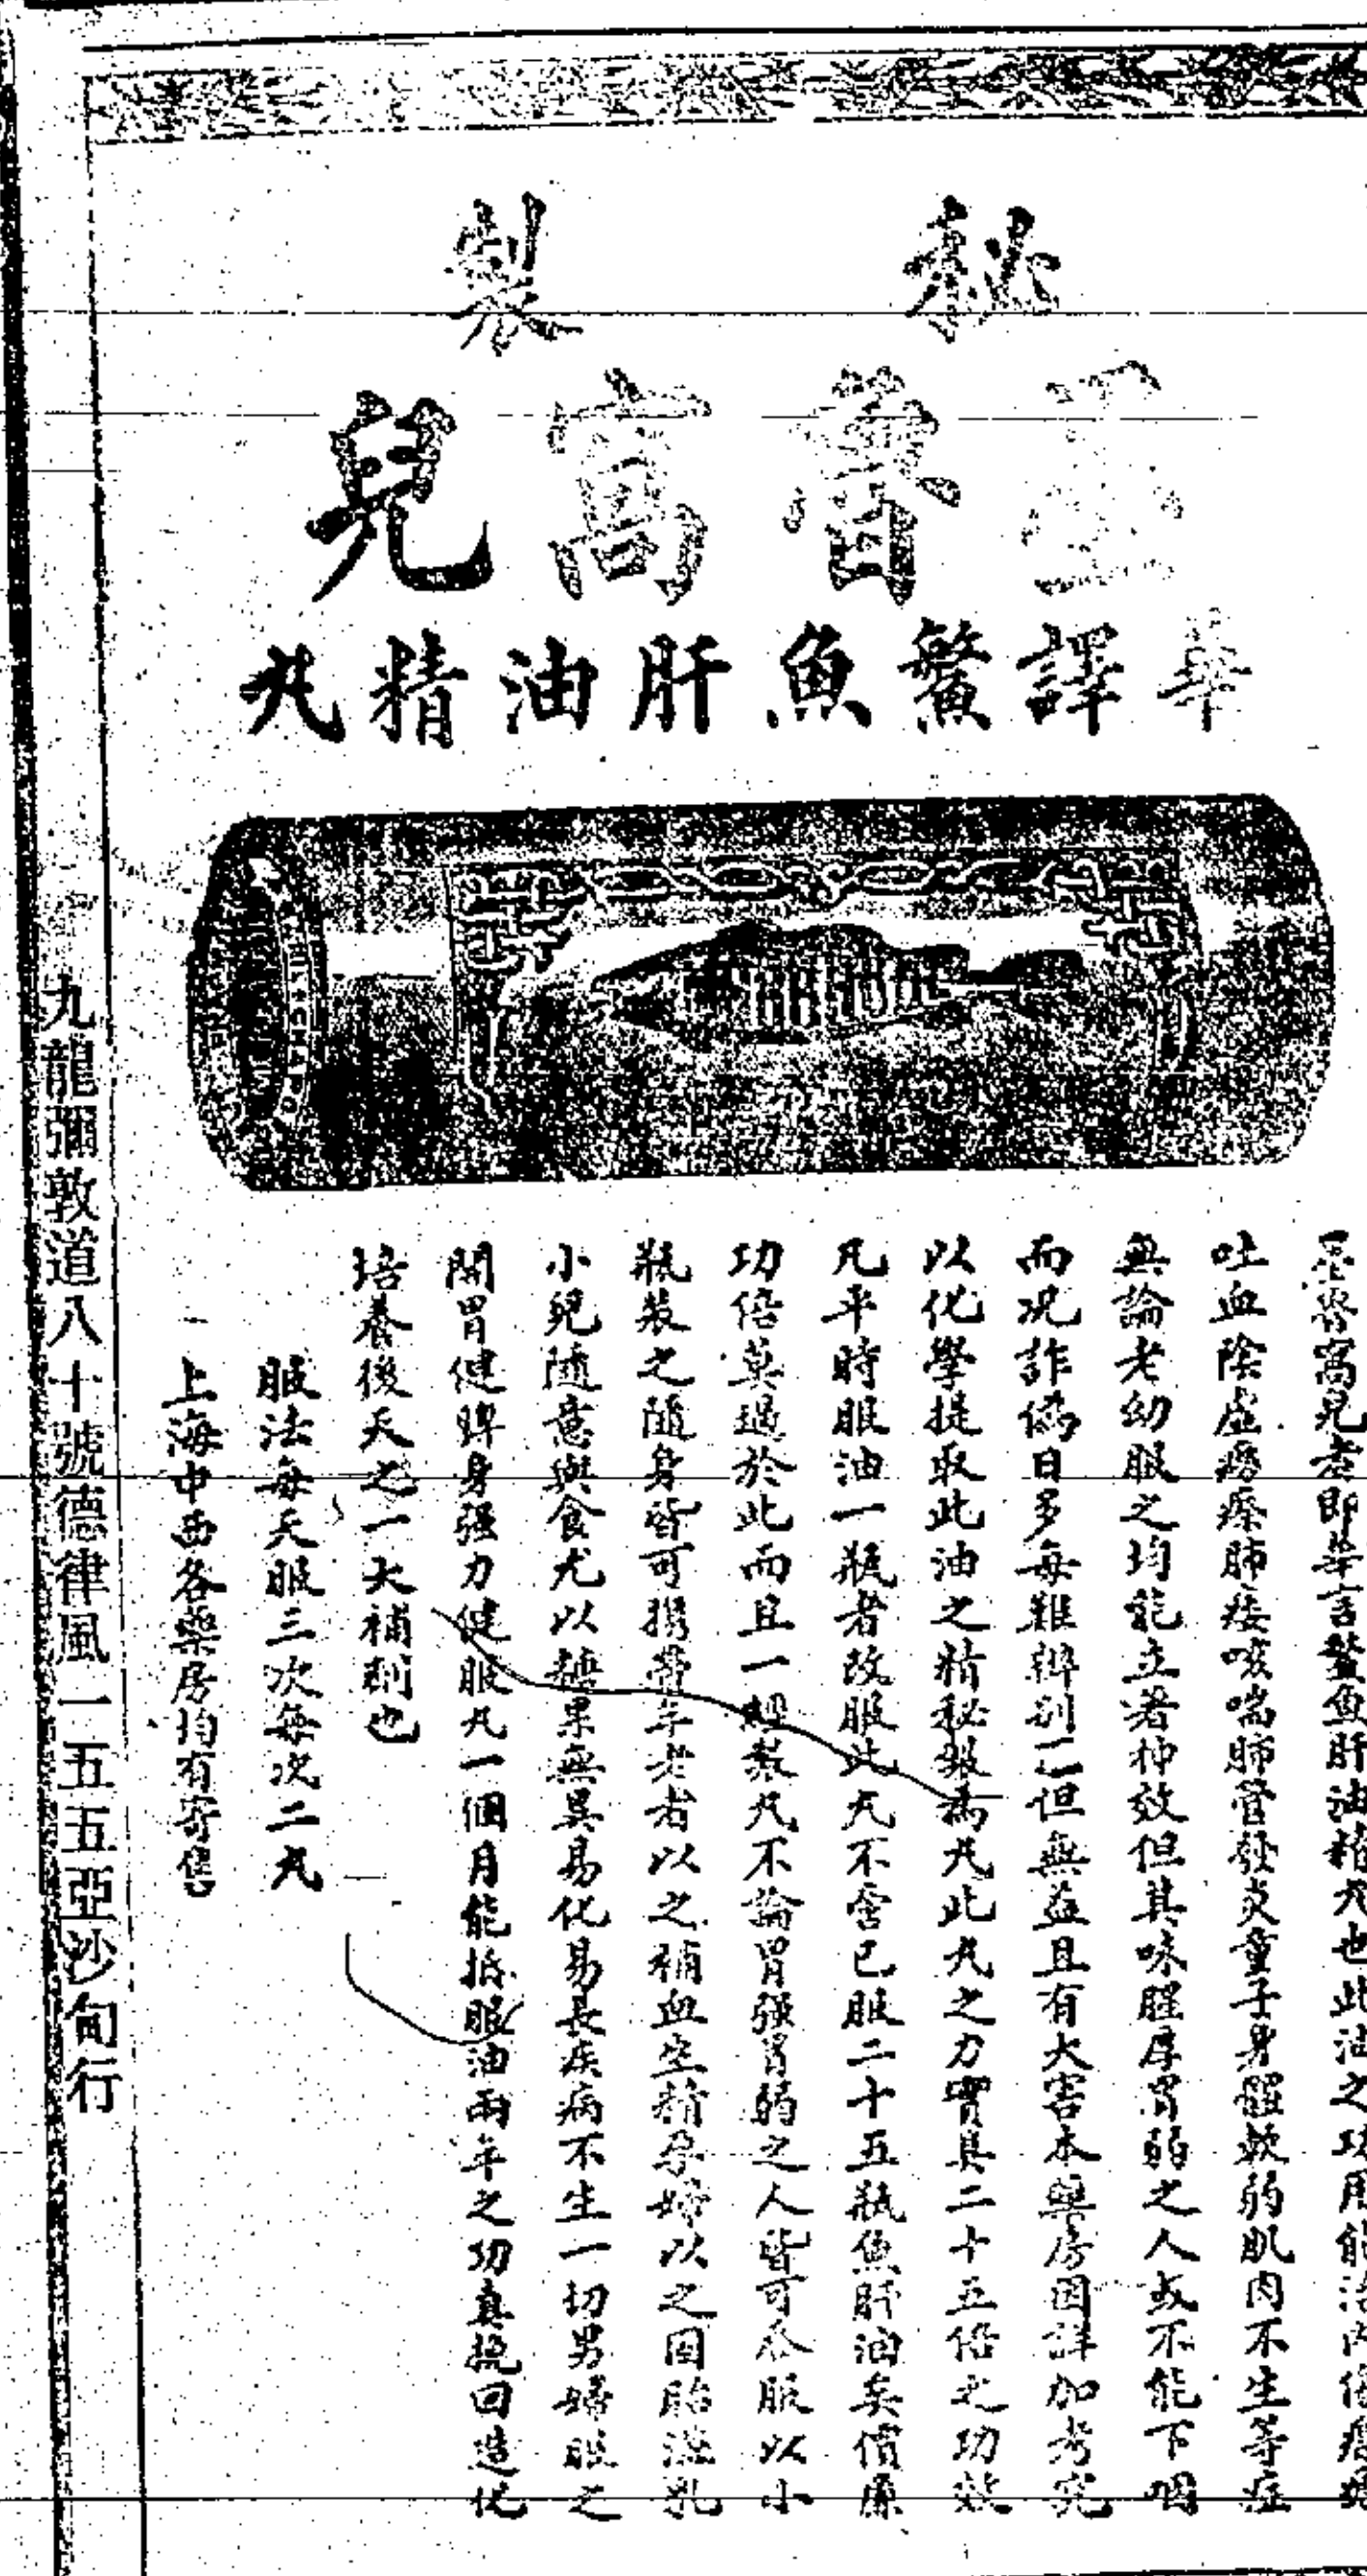 秘製
魯窩兒
華譯鱉魚肝油精丸
窩兒者即華言鱉魚肝油精丸也此油之功用能治內傷
吐血陰虛癆瘵肺痿咳喘肺管發炎童子身體軟弱肌肉不生等症
無論老幼服之均能立著神效但其味腥厚胃弱之人或不能下咽
而况詐偽日多每難辨別不但無益且有大害本藥房因詳加考究
以化學提取此油之精秘製為丸此丸之力實具二十五倍之功效
凡平時服油一瓶者改服此丸不啻已服二十五瓶魚肝油矣價廉
功倍莫過於此而且一經製丸不論胃强胃弱之人皆可吞服以小
瓶裝之隨身皆可攜帶年老者以之補血生精孕婦以之固胎滋乳
小兒隨意與食尤以糖果無異易化易長疾病不生一切男婦服之
開胃健脾身强力健服丸一個月能抵服油兩年之功真挽回造化
培養後天之一大補劑也
服法每天服三次每次二丸
上海中西各藥房均有寄售
九龍彌敦道八十號德律風一五五亞沙甸行